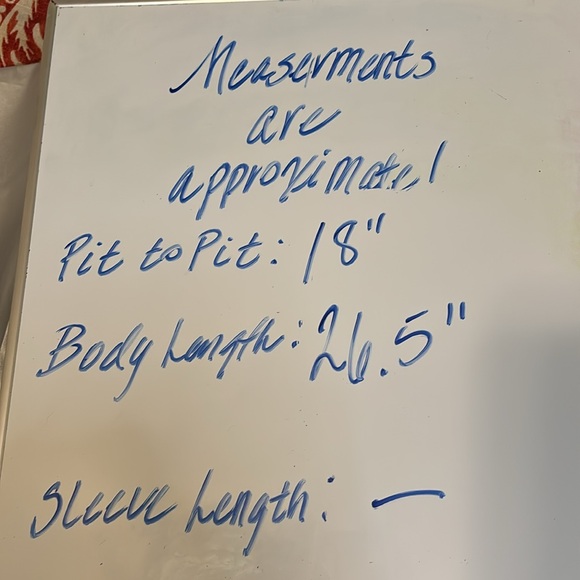 Measerments
are
approximate!
Pit to Pit: 18"
Body Length: 26.5"
Sleeve Length: —